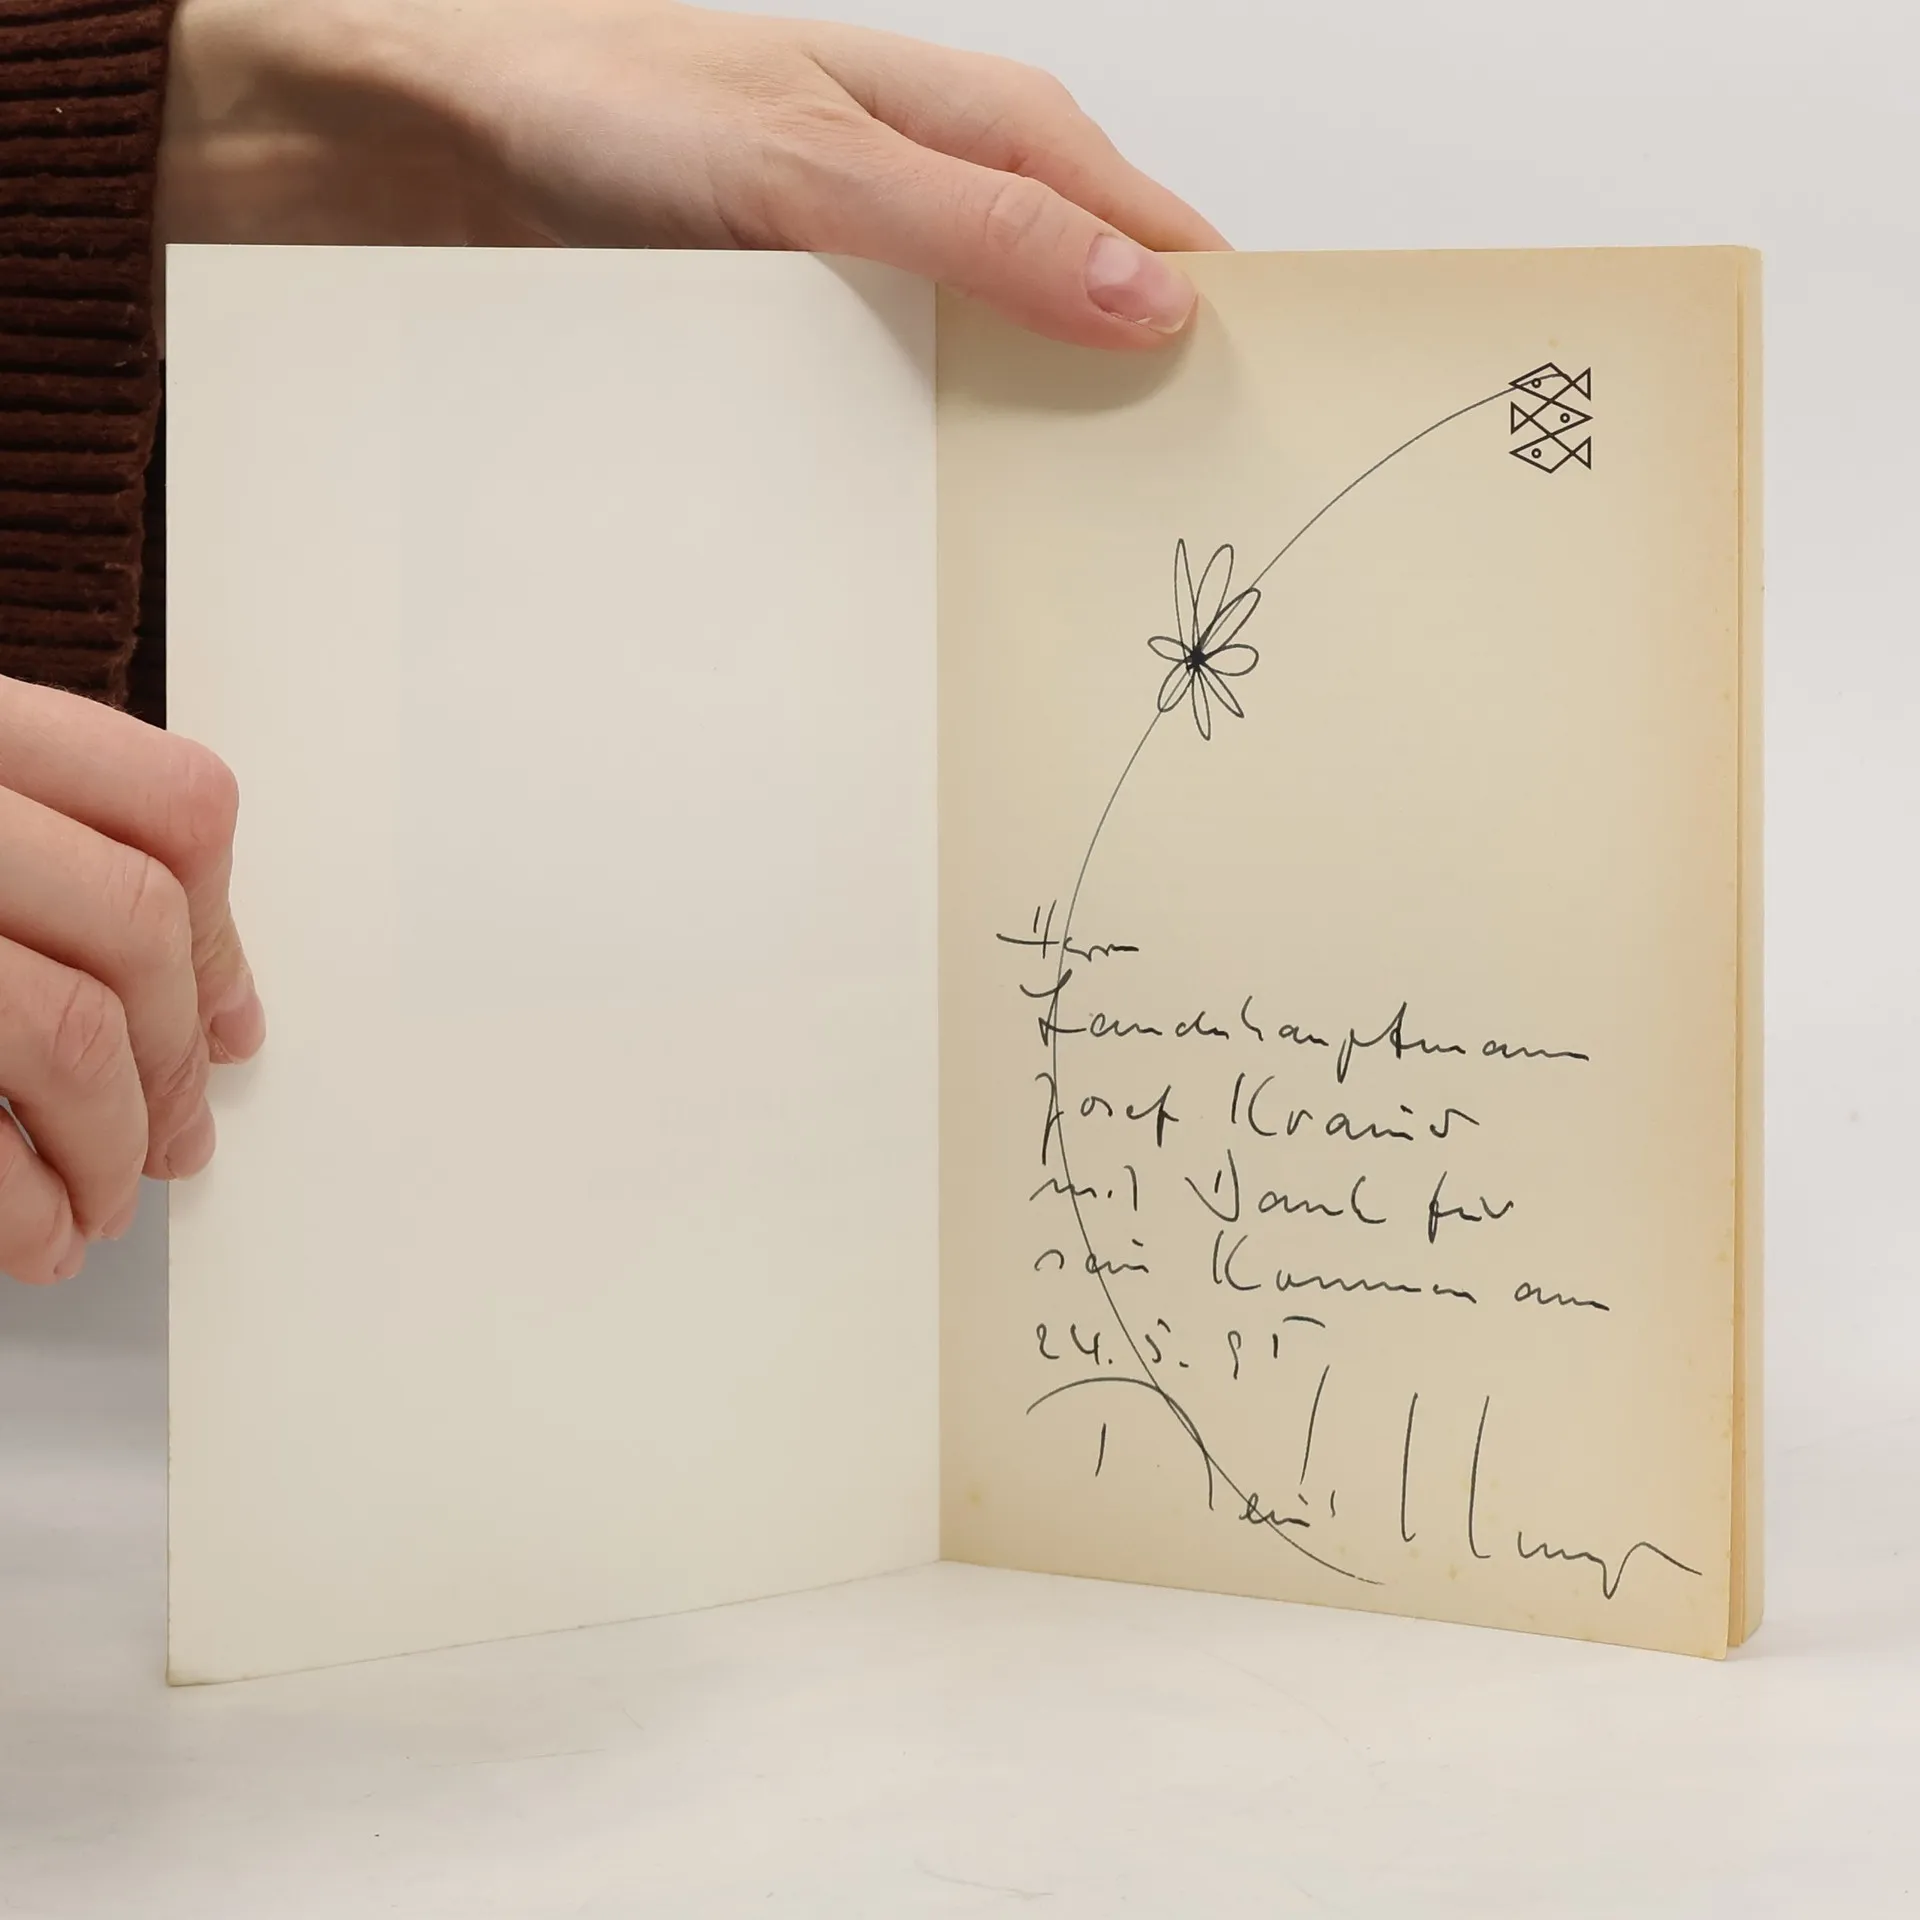 Herrn
Landeshauptmann
Josef Krainer
mit Dank für
sein Kommen am
24. 5. 95